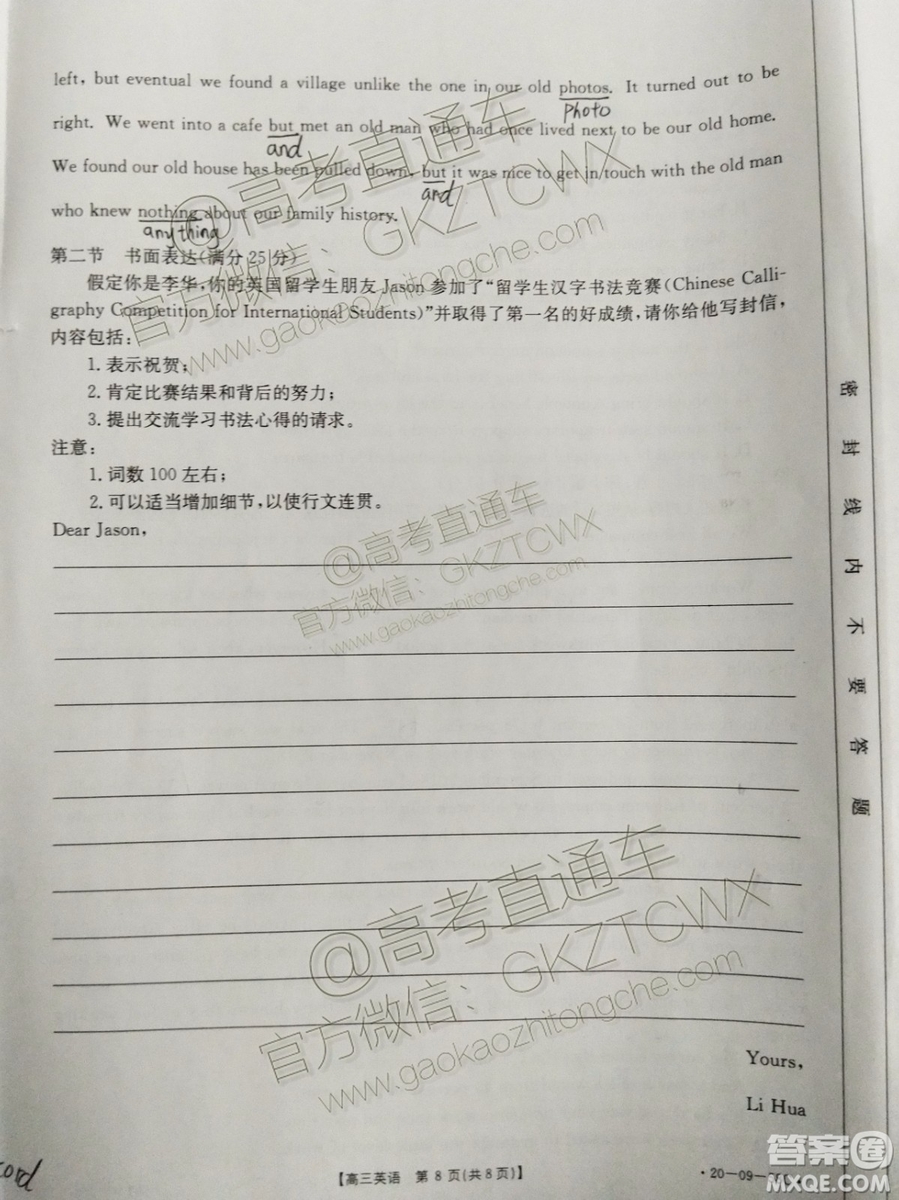 left, but eventual we found a village unlike the one in our old photos. It turned out to be
photo
right. We went into a cafe but met an old man who had once lived next to be our old home.
and
We found our old house has been pulled down, but it was nice to get in touch with the old man
and
who knew nothing about our family history.
anything
第二节 书面表达(满分 25 分)
假定你是李华,你的英国留学生朋友 Jason 参加了“留学生汉字书法竞赛(Chinese Calli-
graphy Competition for International Students)”并取得了第一名的好成绩,请你给他写封信,
内容包括:
1. 表示祝贺;
2. 肯定比赛结果和背后的努力;
3. 提出交流学习书法心得的请求。
注意:
1. 词数 100 左右;
2. 可以适当增加细节,以使行文连贯。
Dear Jason,
Yours,
Li Hua
【高三英语 第 8 页(共 8 页)】
·20-09-
密封线内不要答题
@高考直通车
官方微信:GKZTCWX
www.gaokaozhitongche.com
@高考直通车
官方微信:GKZTCWX
www.gaokaozhitongche.com
@高考直通车
官方微信:GKZTCWX
www.gaokaozhitongche.com
答案圈
MXQE.COM